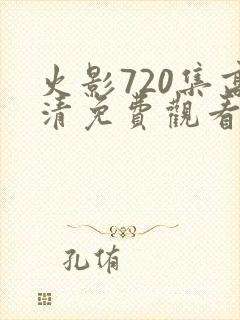 火影720集高
清免費觀看
孔侑